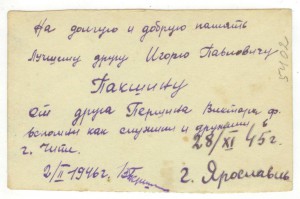 На долгую и добрую память
Лучшему другу Игорю Павловичу
Пакшину
от друга Першина Виктора ф.
вспомни как служили и дружили в
г. Чите. 28/XI 45 г.
2/II 1946 г.
г. Ярославль
5402